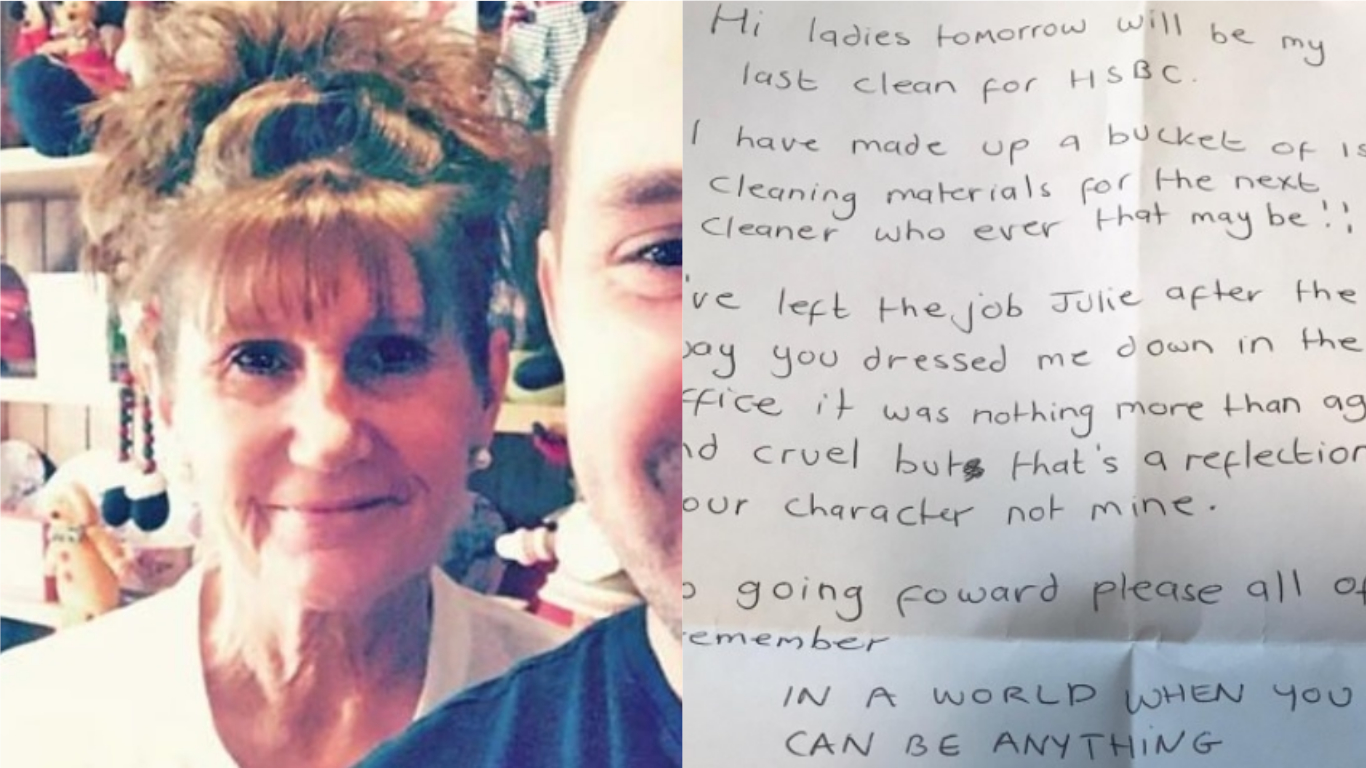 Hi ladies tomorrow will be my
last clean for HSBC.
I have made up a bucket of
cleaning materials for the next
cleaner who ever that may be!!
've left the job Julie after the
ay you dressed me down in the
ffice it was nothing more than ag
nd cruel but that's a reflection
our character not mine.
going foward please all of
emember
IN A WORLD WHEN YOU
CAN BE ANYTHING